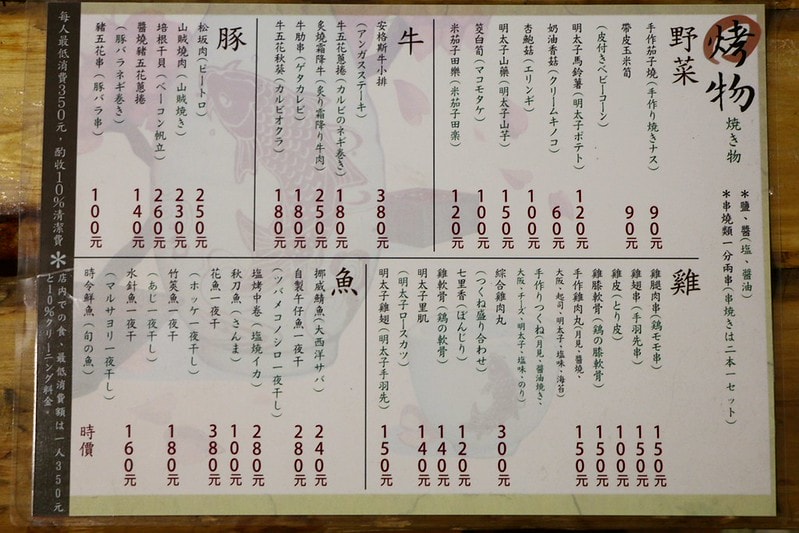 烤物
焼き物
＊鹽、醬(塩、醤油)
＊串燒類一分兩串(串焼きは二本一セット)
野菜
手作茄子燒(手作り焼きナス) 90元
帶皮玉米筍
(皮付きベビーコーン) 90元
明太子馬鈴薯(明太子ポテト) 120元
奶油香菇(クリームキノコ) 60元
杏鮑菇(エリンギ) 100元
明太子山藥(明太子山芋) 150元
筊白筍(マコモタケ) 100元
米茄子田樂(米茄子田楽) 120元
牛
安格斯牛小排
(アンガスステーキ) 380元
牛五花蔥捲(カルビのネギ巻き) 180元
炙燒霜降牛(炙り霜降り牛肉) 250元
牛肋串(ゲタカレビ) 180元
牛五花秋葵(カルビオクラ) 180元
豚
松坂肉(ピートロ) 250元
山賊燒肉(山賊焼き) 230元
培根干貝(ベーコン帆立) 260元
醬燒豬五花蔥捲
(豚バラネギ巻き) 140元
豬五花串(豚バラ串) 100元
雞
雞腿肉串(鶏モモ串) 150元
雞翅串(手羽先串) 150元
雞皮(とり皮) 100元
雞膝軟骨(鶏の膝軟骨) 150元
手作雞肉丸(月見、醬燒、
大阪、起司、明太子、塩味、海苔) 150元
手作りつくね(月見、醤油焼き、
大阪、チーズ、明太子、塩味、のり)
綜合雞肉丸
(つくね盛り合わせ) 300元
七里香(ぼんじり) 120元
雞軟骨(鶏の軟骨) 140元
明太子里肌
(明太子ロースカツ) 140元
明太子雞翅(明太子手羽先) 150元
魚
挪威鯖魚(大西洋サバ) 240元
自製午仔魚一夜干
(ツバメコノシロ一夜干し) 280元
塩烤中卷(塩焼イカ) 280元
秋刀魚(さんま) 100元
花魚一夜干
(ホッケ一夜干し) 380元
竹筴魚一夜干
(あじ一夜干し) 180元
水針魚一夜干
(マルサヨリ一夜干し) 160元
時令鮮魚(旬の魚) 時價
每人最低消費350元，酌收10%清潔費
＊店内での食、最低消費額は一人350元
と10%クリーニング料金。